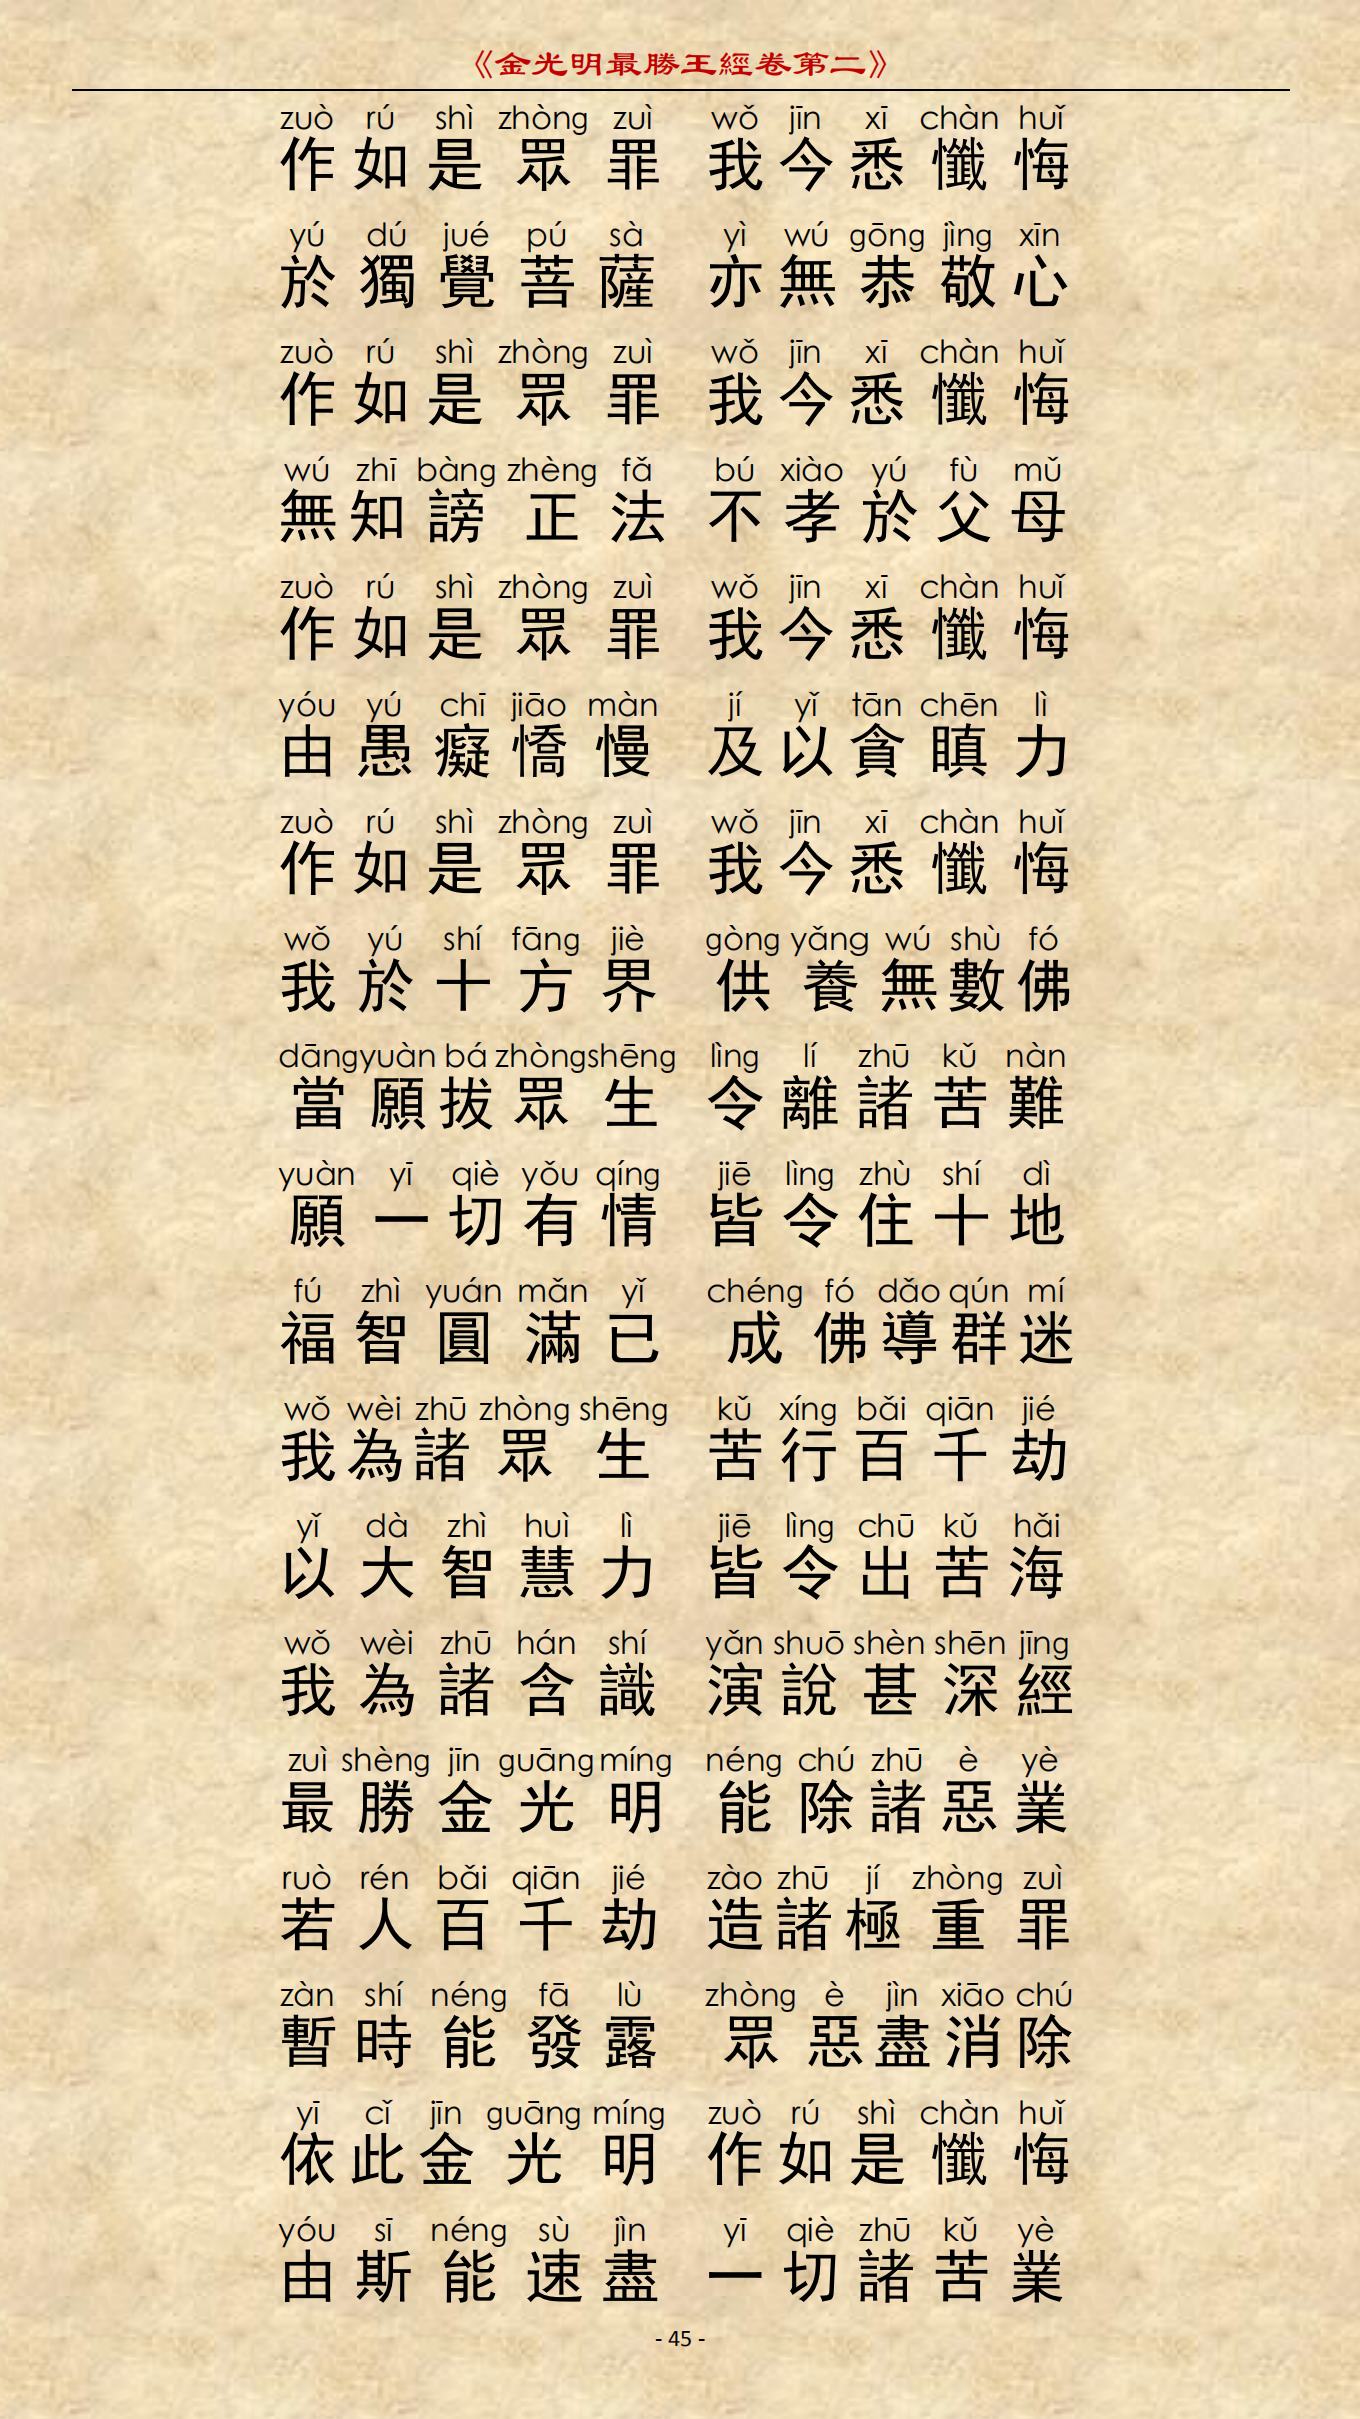 《金光明最勝王經卷第二》
zuò rú shì zhòng zuì wǒ jīn xī chàn huǐ
作如是眾罪 我今悉懺悔
yú dú jué pú sà yì wú gōng jìng xīn
於獨覺菩薩 亦無恭敬心
zuò rú shì zhòng zuì wǒ jīn xī chàn huǐ
作如是眾罪 我今悉懺悔
wú zhī bàng zhèng fǎ bú xiào yú fù mǔ
無知謗正法 不孝於父母
zuò rú shì zhòng zuì wǒ jīn xī chàn huǐ
作如是眾罪 我今悉懺悔
yóu yú chī jiāo màn jí yǐ tān chēn lì
由愚癡憍慢 及以貪瞋力
zuò rú shì zhòng zuì wǒ jīn xī chàn huǐ
作如是眾罪 我今悉懺悔
wǒ yú shí fāng jiè gòng yǎng wú shù fó
我於十方界 供養無數佛
dāng yuàn bá zhòng shēng lìng lí zhū kǔ nàn
當願拔眾生 令離諸苦難
yuàn yī qiè yǒu qíng jiē lìng zhù shí dì
願一切有情 皆令住十地
fú zhì yuán mǎn yǐ chéng fó dǎo qún mí
福智圓滿已 成佛導群迷
wǒ wèi zhū zhòng shēng kǔ xíng bǎi qiān jié
我為諸眾生 苦行百千劫
yǐ dà zhì huì lì jiē lìng chū kǔ hǎi
以大智慧力 皆令出苦海
wǒ wèi zhū hán shí yǎn shuō shèn shēn jīng
我為諸含識 演說甚深經
zuì shèng jīn guāng míng néng chú zhū è yè
最勝金光明 能除諸惡業
ruò rén bǎi qiān jié zào zhū jí zhòng zuì
若人百千劫 造諸極重罪
zàn shí néng fā lù zhòng è jìn xiāo chú
暫時能發露 眾惡盡消除
yī cǐ jīn guāng míng zuò rú shì chàn huǐ
依此金光明 作如是懺悔
yóu sī néng sù jìn yī qiè zhū kǔ yè
由斯能速盡 一切諸苦業
- 45 -